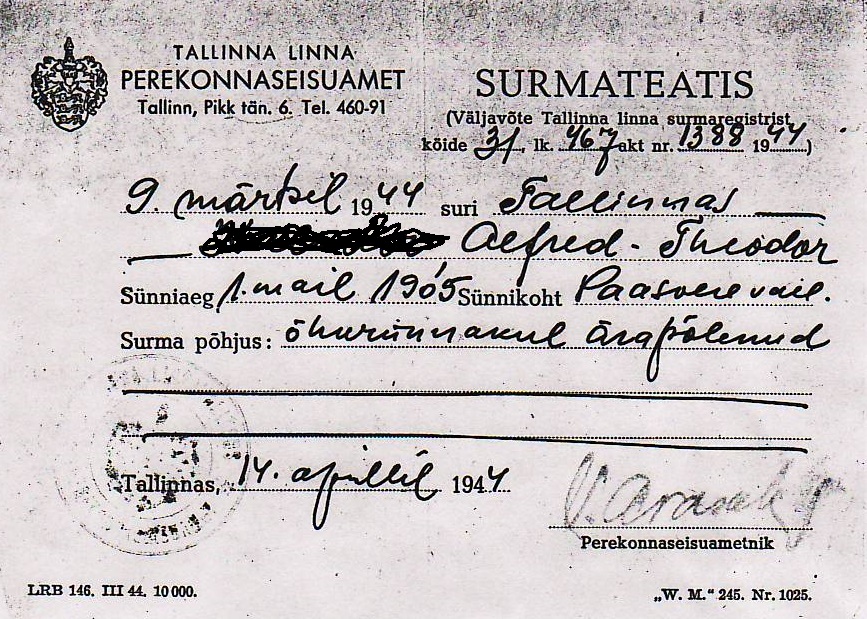 TALLINNA LINNA
PEREKONNASEISUAMET
Tallinn, Pikk tän. 6. Tel. 460-91
SURMATEATIS
(Väljavõte Tallinna linna surmaregistrist,
köide 31, lk. 467 akt nr. 1388 1944)
9. märtsil 1944 suri Tallinnas
Alfred-Theodor
Sünniaeg 1. mail 1905 Sünnikoht Paasvere vall.
Surma põhjus: õhurünnakul ärapõlenud
Tallinnas, 14. aprillil 1944
Perekonnaseisuametnik
LRB 146. III 44. 10 000.
„W. M.“ 245. Nr. 1025.